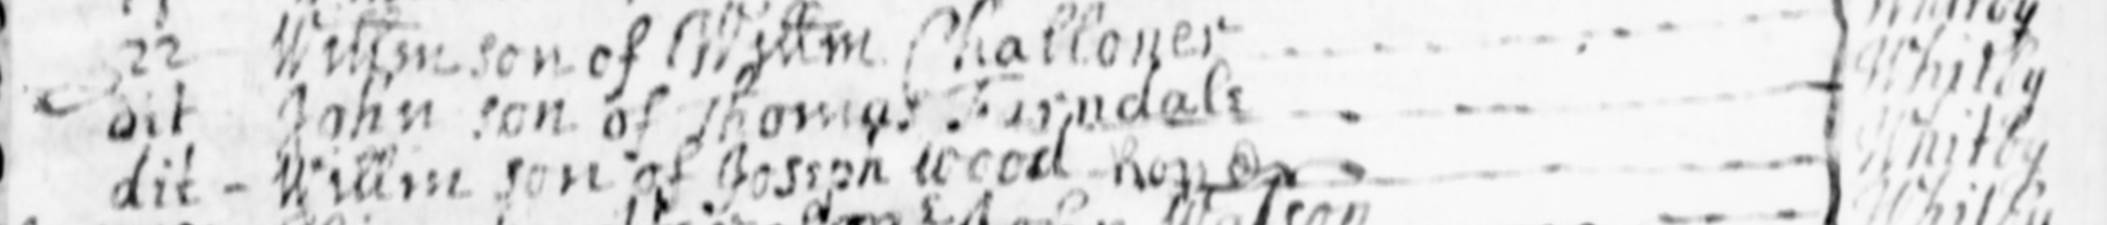 22 Willm son of Willm Challoner Whitby
dit John son of Thomas Farndale Whitby
dit - Willm son of Joseph Wood Whitby
Watson Whitby